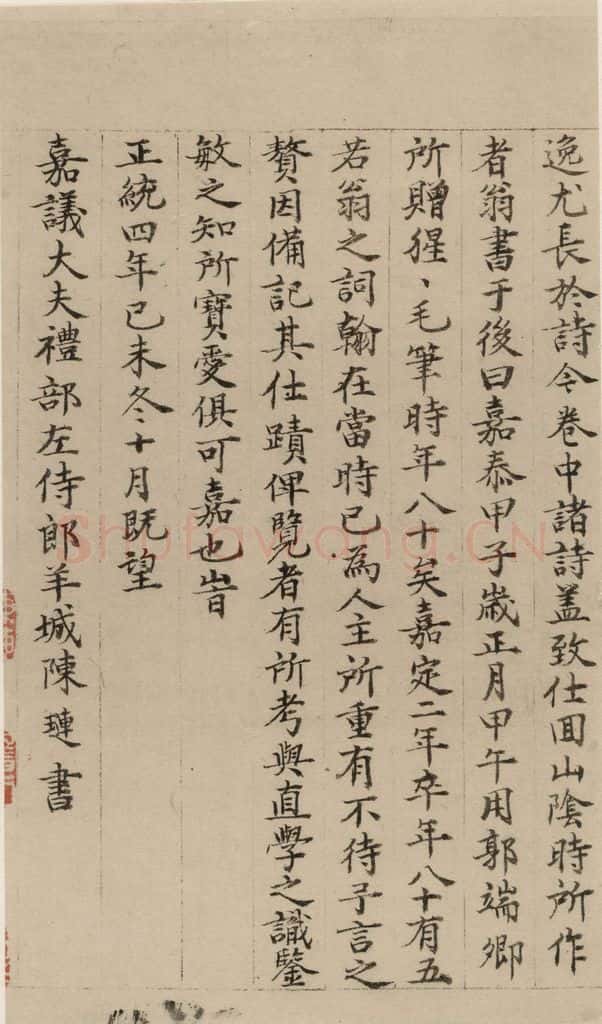 逸尤長於詩今卷中諸詩蓋致仕回山陰時所作
者翁書于後曰嘉泰甲子歲正月甲午用郭端卿
所贈猩〻毛筆時年八十矣嘉定二年卒年八十有五
若翁之詞翰在當時已為人主所重有不待予言之
贅因備記其仕蹟俾覽者有所考與直學之識鑒
敏之知所寶愛俱可嘉也旹
正統四年己未冬十月既望
嘉議大夫禮部左侍郎羊城陳璉書
Shufawang.CN